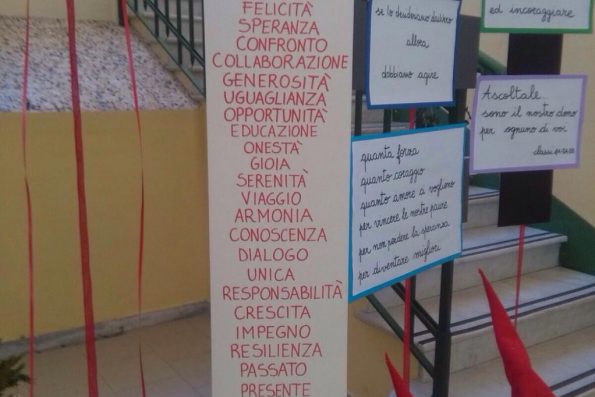 FELICITÀ
SPERANZA
CONFRONTO
COLLABORAZIONE
GENEROSITÀ
UGUAGLIANZA
OPPORTUNITÀ
EDUCAZIONE
ONESTÀ
GIOIA
SERENITÀ
VIAGGIO
ARMONIA
CONOSCENZA
DIALOGO
UNICA
RESPONSABILITÀ
CRESCITA
IMPEGNO
RESILIENZA
PASSATO
PRESENTE
se lo desideriamo davvero
allora
dobbiamo agire
quanta forza
quanto coraggio
quanto amore ci vogliono
per vincere le nostre paure
per non perdere la speranza
per diventare migliori
ed incoraggiare
Ascoltale
sono il nostro dono
per ognuno di voi
classi